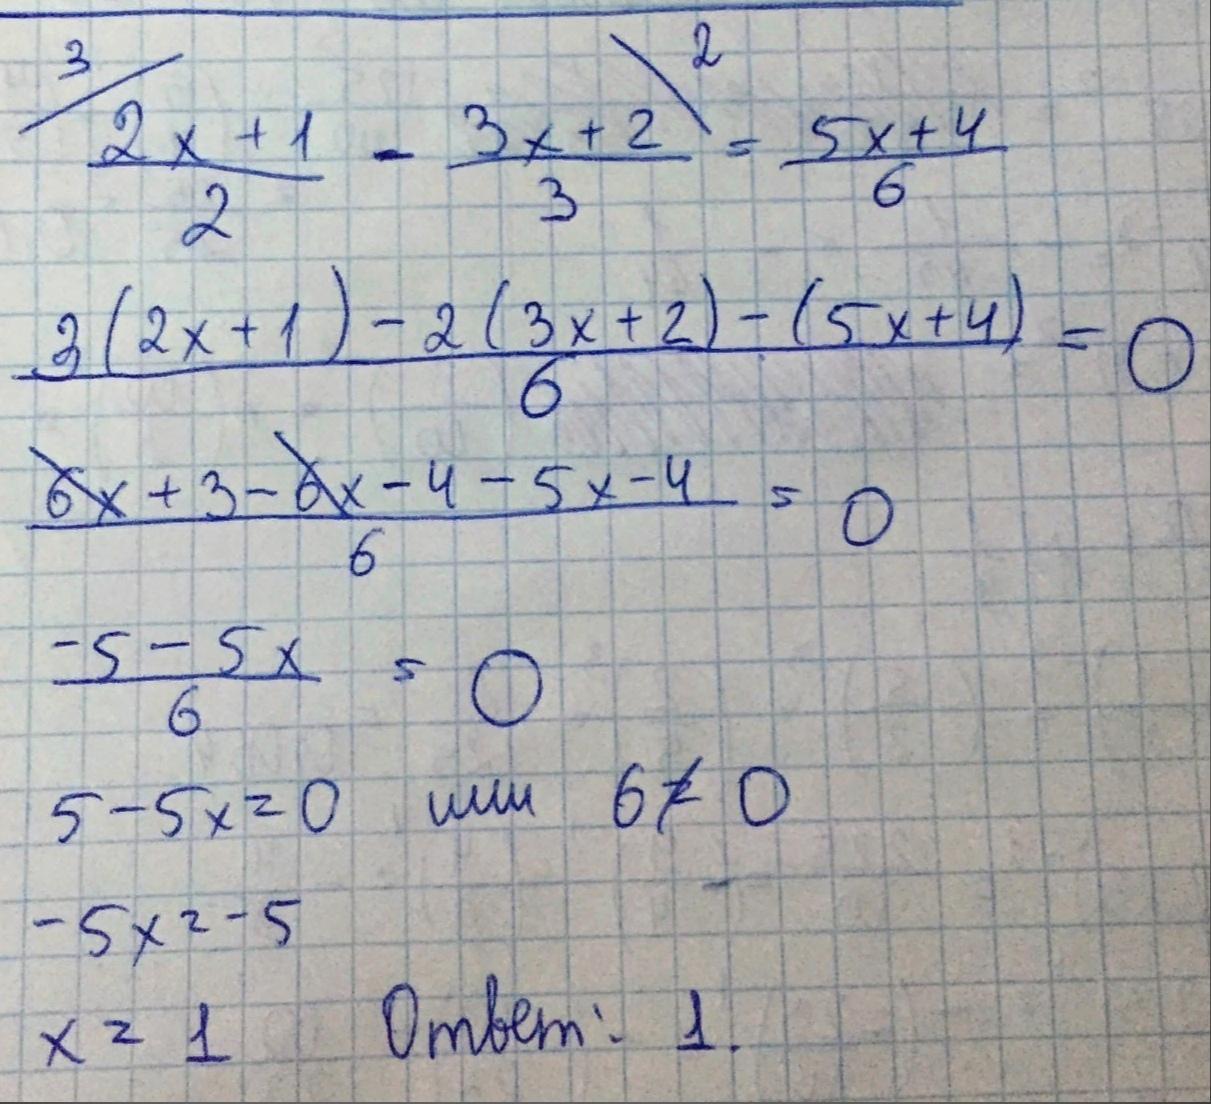 3 2
(2x + 1)/2 - (3x + 2)/3 = (5x + 4)/6
(3(2x + 1) - 2(3x + 2) - (5x + 4))/6 = 0
(6x + 3 - 6x - 4 - 5x - 4)/6 = 0
(-5 - 5x)/6 = 0
5 - 5x = 0 или 6 ≠ 0
-5x = -5
x = 1 Ответ: 1.